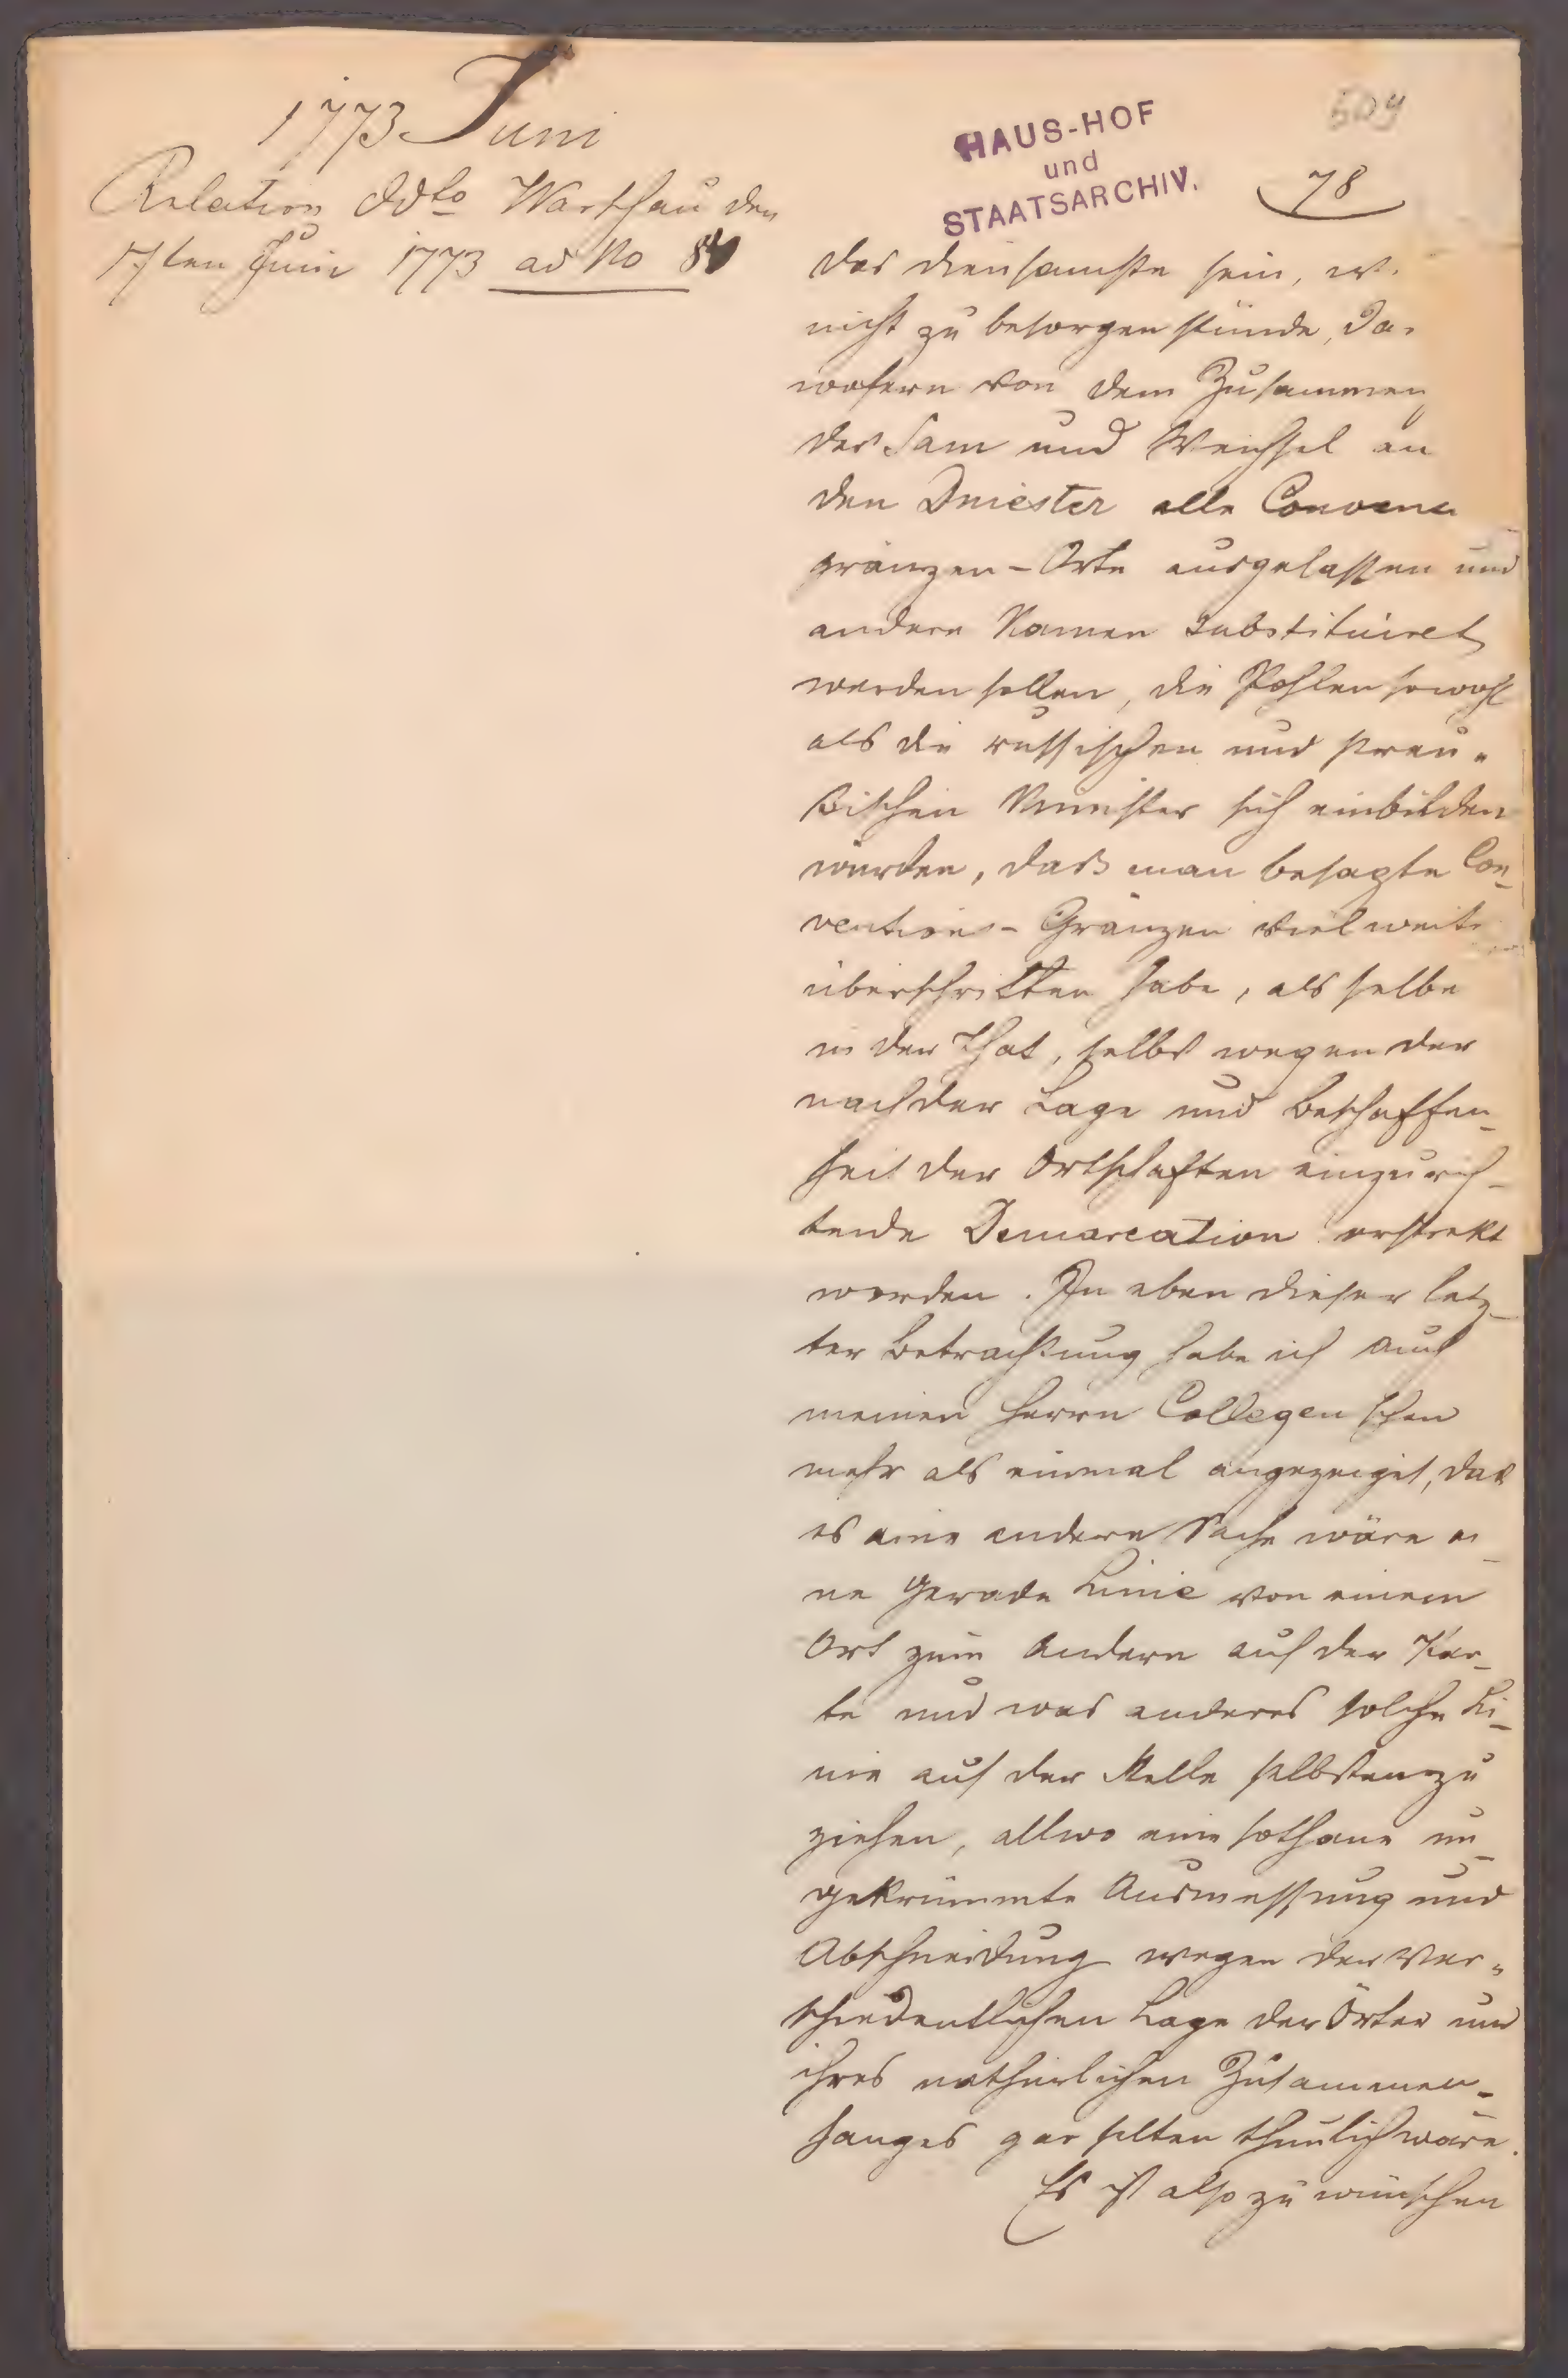 1773 Juni
Relation ddto Warschau den
17ten Juni 1773 ad No
HAUS-HOF
und
STAATSARCHIV.
609
78
das diensamste sein, w
nicht zu besorgen stünde, da,
wofern von dem Zusammen
der San und Weichsel an
den Dniester alle Conven
gränzen-Orte ausgelassen und
andere Namen substituiret
werden sollen, die Pohlen sowohl
als die russischen und preu-
ßischen Minister sich einbilden
würden, daß man besagte Con-
ventions-Gränzen viel weite
überschritten habe, als selbe
in der That, selbst wegen der
nach der Lage und Beschaffen-
heit der Ortschaften einzurich-
tende Demarcation erstrekt
worden. In eben dieser letz-
ter Betrachtung habe ich auch
meinen Herrn Collegen schon
mehr als einmal angezeiget, daß
es eine andere Sache wäre ei-
ne gerade Linie von einem
Ort zum Andern auf der Kar-
te und was anderes solche Li-
nie auf der Stelle selbsten zu
ziehen, allwo eine sothane un-
gekrümmte Ausmessung und
Abschneidung wegen der ver-
schiedentlichen Lage der Örter und
ihres nathürlichen Zusammen-
hanges gar selten thunlich wäre.
Es ist also zu wünschen